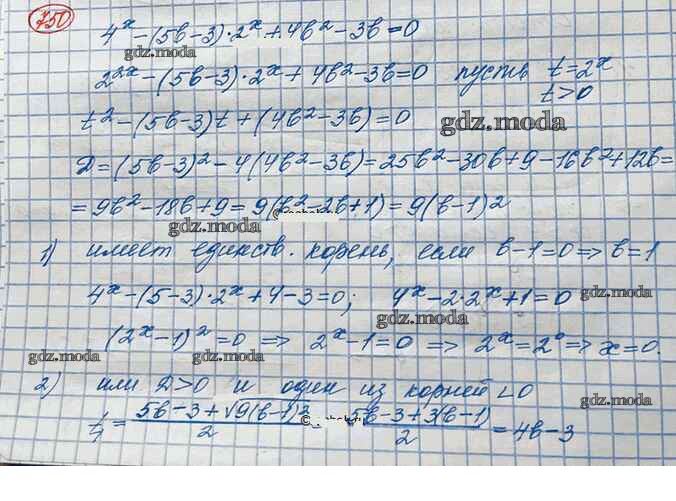 750
4^x-(5b-3)·2^x+4b²-3b=0
gdz.moda
2^{2x}-(5b-3)·2^x+4b²-3b=0 пусть t=2^x
t>0
t²-(5b-3)t+(4b²-3b)=0
gdz.moda
D=(5b-3)²-4(4b²-3b)=25b²-30b+9-16b²+12b=
=9b²-18b+9=9(b²-2b+1)=9(b-1)²
gdz.moda
1) имеет единств. корень, если b-1=0⇒b=1
gdz.moda
4^x-(5-3)·2^x+4-3=0; 4^x-2·2^x+1=0
gdz.moda
(2^x-1)²=0 ⇒ 2^x-1=0 ⇒ 2^x=2^0⇒x=0.
gdz.moda gdz.moda
2) или D>0 и один из корней <0
gdz.moda
t₁=\frac{5b-3+√9(b-1)²}{2} \frac{5b-3+3(b-1)}{2}=4b-3
gdz.moda